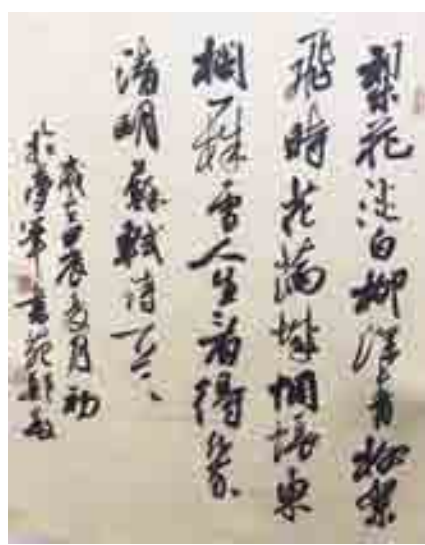 梨花淡白柳深青柳絮
飛時花滿城惆悵東
欄一株雪人生看得幾
清明蘇軾詩一首
歲在甲辰夏月初
於書苑